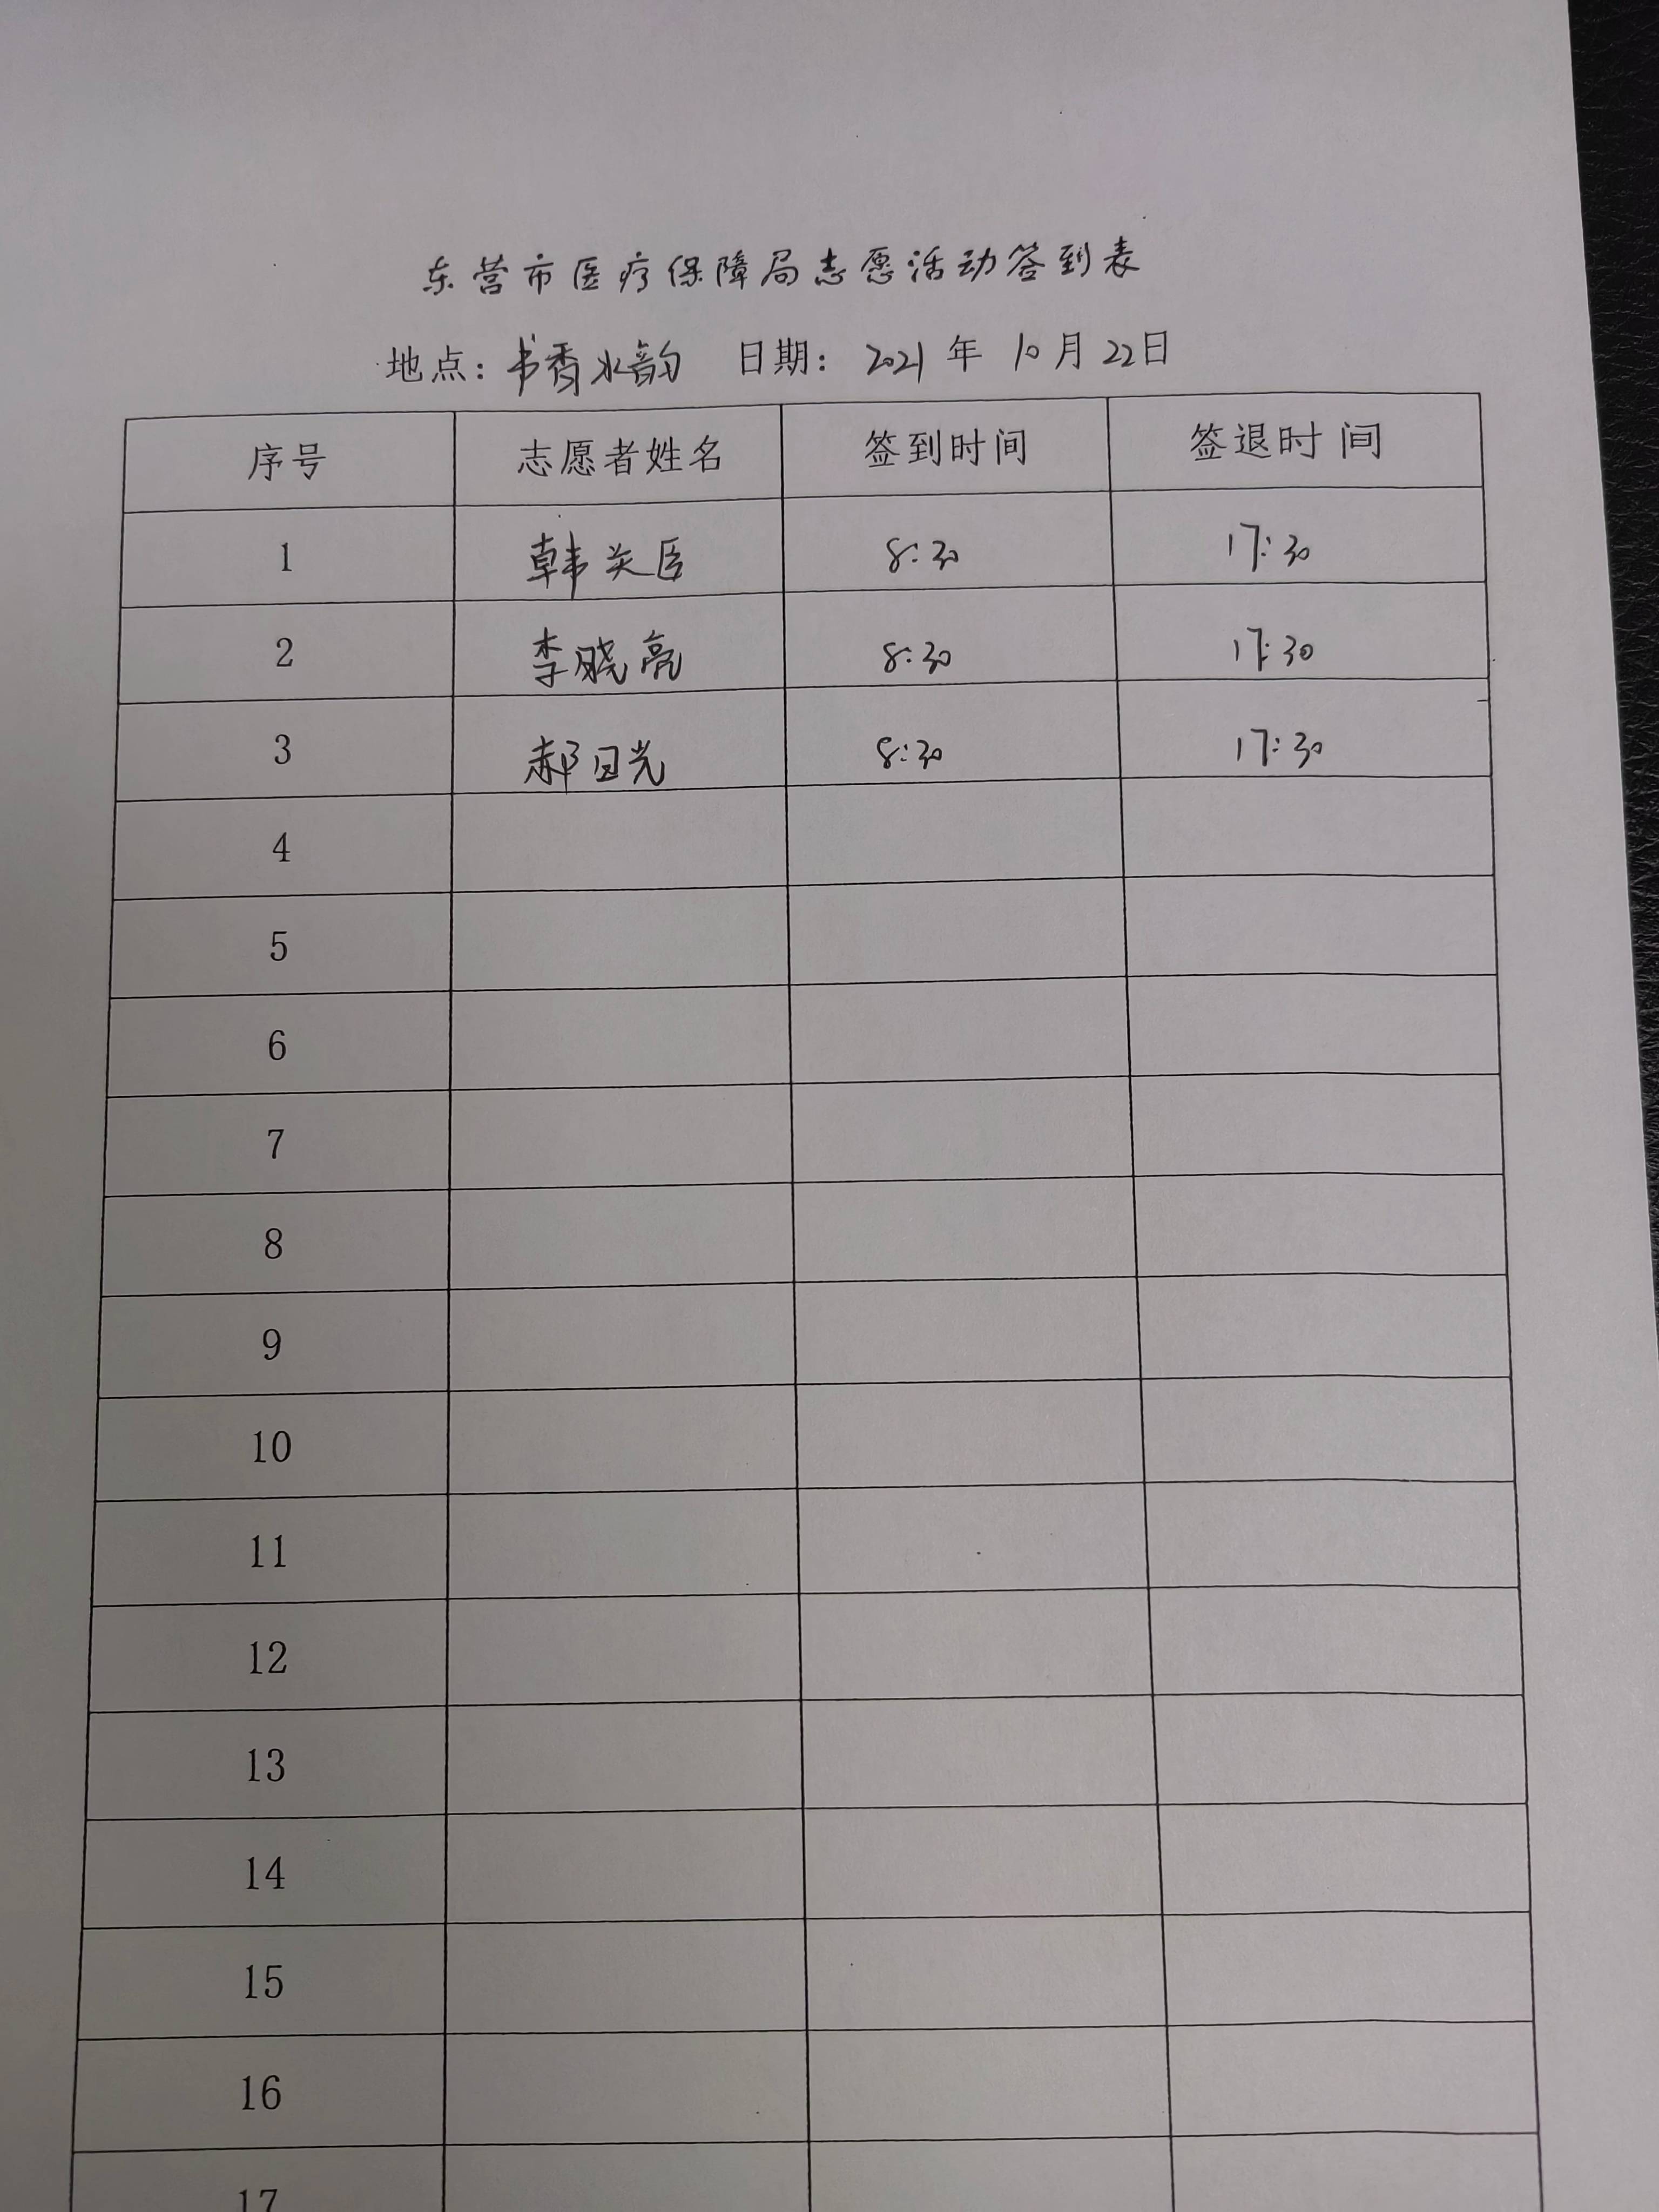 东营市医疗保障局志愿活动签到表
地点：书香水韵 日期：2021年10月22日
序号 志愿者姓名 签到时间 签退时间
1 韩关臣 8:30 17:30
2 李晓亮 8:30 17:30
3 郝日光 8:30 17:30
4
5
6
7
8
9
10
11
12
13
14
15
16
17